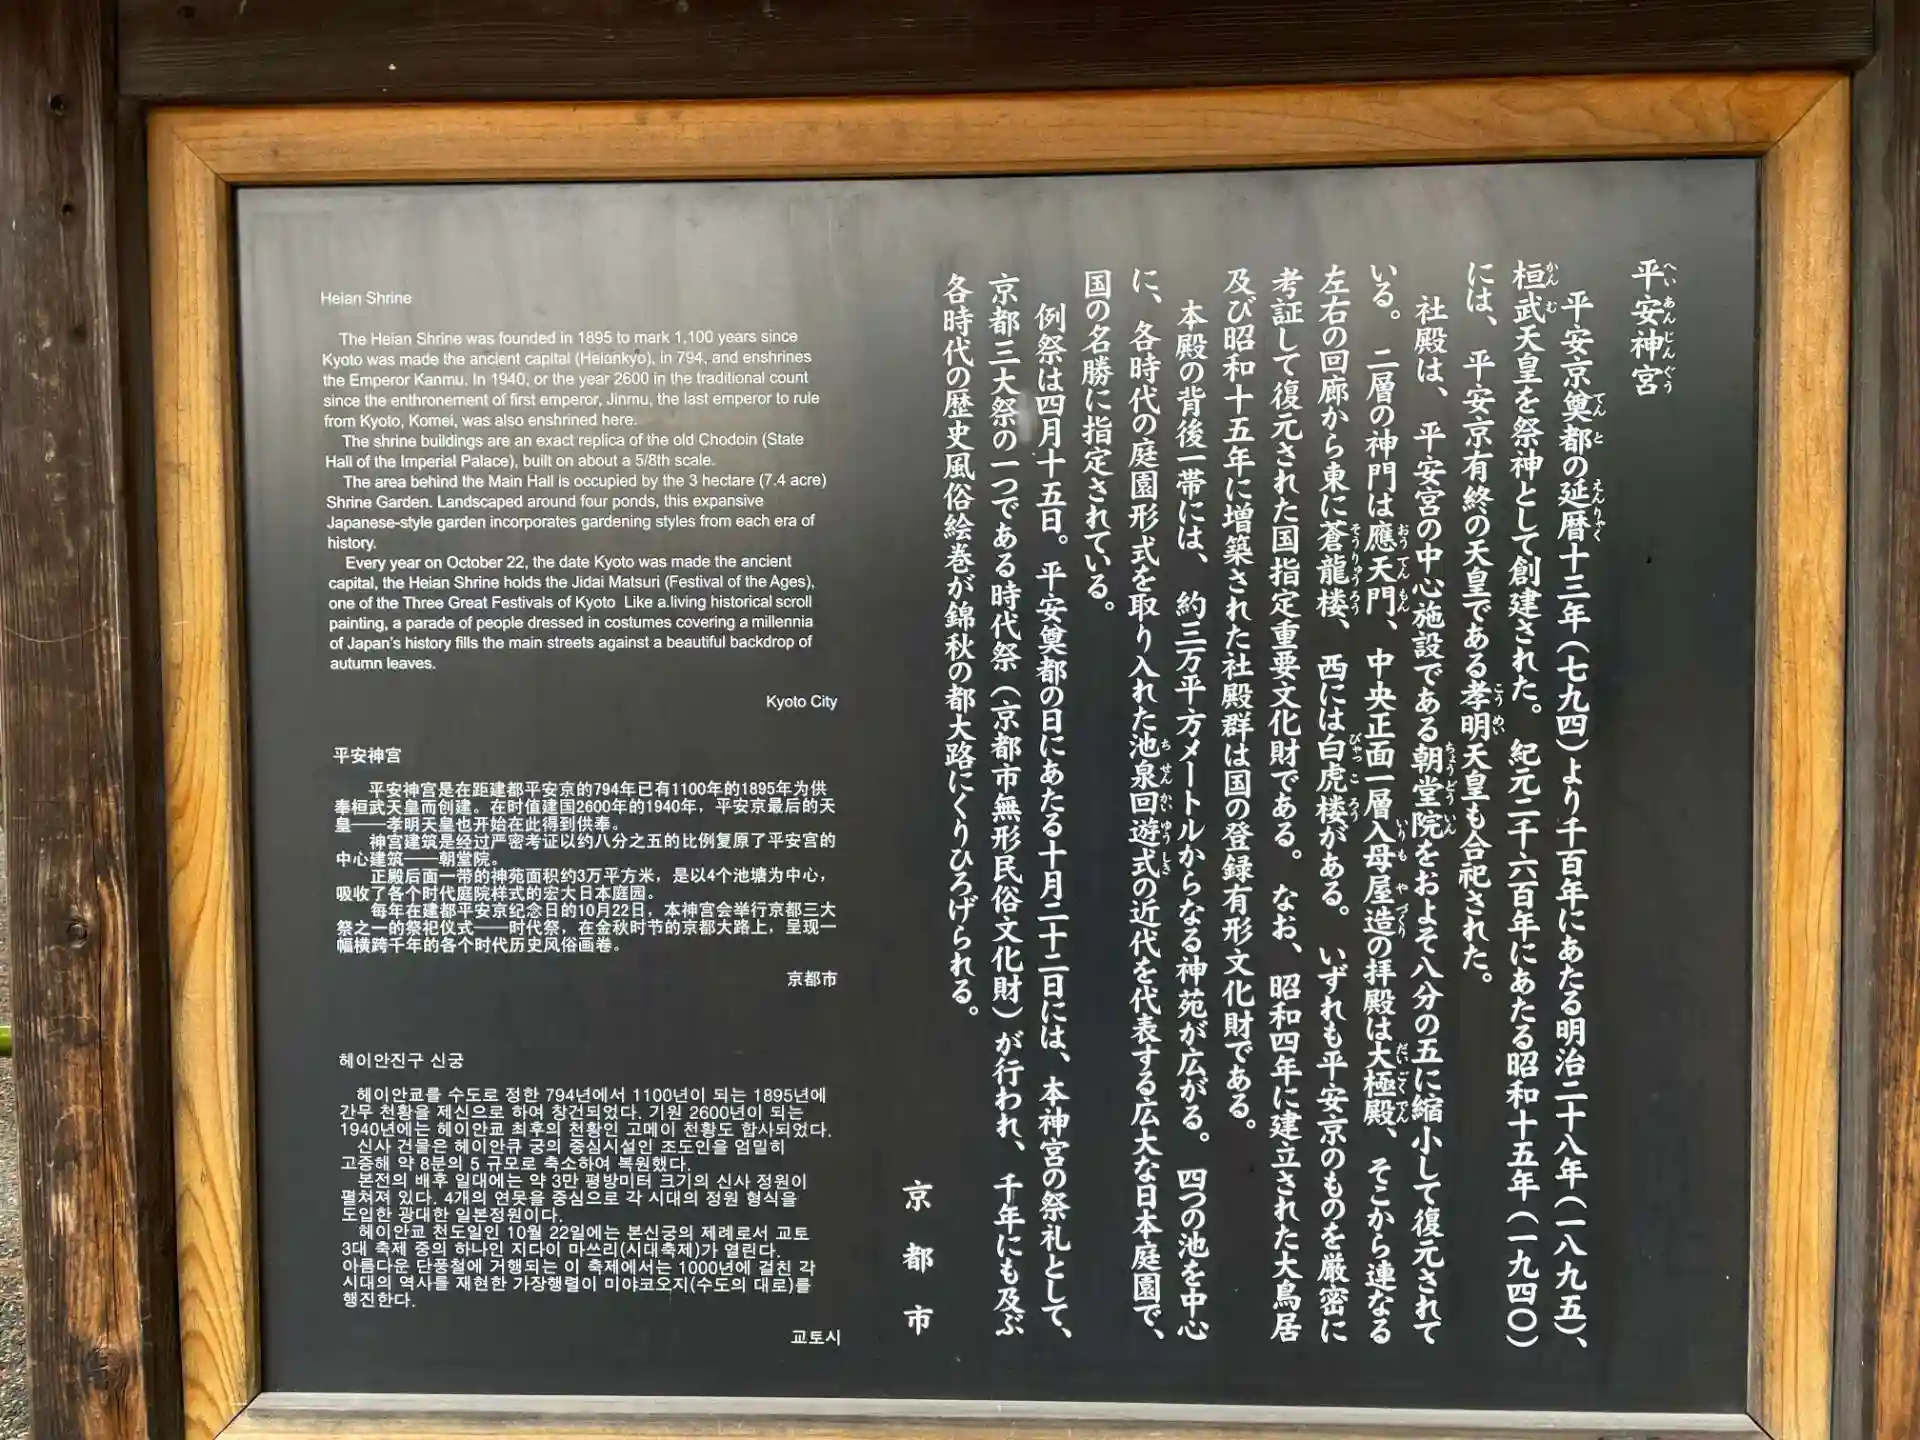 平安神宮
平安京奠都の延暦十三年(七九四)より千百年にあたる明治二十八年(一八九五)、
桓武天皇を祭神として創建された。紀元二千六百年にあたる昭和十五年(一九四〇)
には、平安京有終の天皇である孝明天皇も合祀された。
社殿は、平安宮の中心施設である朝堂院をおよそ八分の五に縮小して復元されて
いる。二層の神門は應天門、中央正面一層入母屋造の拝殿は大極殿、そこから連なる
左右の回廊から東に蒼龍楼、西には白虎楼がある。いずれも平安京のものを厳密に
考証して復元された国指定重要文化財である。なお、昭和四年に建立された大鳥居
及び昭和十五年に増築された社殿群は国の登録有形文化財である。
本殿の背後一帯には、約三万平方メートルからなる神苑が広がる。四つの池を中心
に、各時代の庭園形式を取り入れた池泉回遊式の近代を代表する広大な日本庭園で、
国の名勝に指定されている。
例祭は四月十五日。平安奠都の日にあたる十月二十二日には、本神宮の祭礼として、
京都三大祭の一つである時代祭(京都市無形民俗文化財)が行われ、千年にも及ぶ
各時代の歴史風俗絵巻が錦秋の都大路にくりひろげられる。
京都市
Heian Shrine
The Heian Shrine was founded in 1895 to mark 1,100 years since
Kyoto was made the ancient capital (Heiankyo), in 794, and enshrines
the Emperor Kanmu. In 1940, or the year 2600 in the traditional count
since the enthronement of first emperor, Jinmu, the last emperor to rule
from Kyoto, Komei, was also enshrined here.
The shrine buildings are an exact replica of the old Chodoin (State
Hall of the Imperial Palace), built on about a 5/8th scale.
The area behind the Main Hall is occupied by the 3 hectare (7.4 acre)
Shrine Garden. Landscaped around four ponds, this expansive
Japanese-style garden incorporates gardening styles from each era of
history.
Every year on October 22, the date Kyoto was made the ancient
capital, the Heian Shrine holds the Jidai Matsuri (Festival of the Ages),
one of the Three Great Festivals of Kyoto Like a living historical scroll
painting, a parade of people dressed in costumes covering a millennia
of Japan's history fills the main streets against a beautiful backdrop of
autumn leaves.
Kyoto City
平安神宫
平安神宫是在距建都平安京的794年已有1100年的1895年为供
奉桓武天皇而创建。在时值建国2600年的1940年，平安京最后的天
皇——孝明天皇也开始在此得到供奉。
神宫建筑是经过严密考证以约八分之五的比例复原了平安宫的
中心建筑——朝堂院。
正殿后面一带的神苑面积约3万平方米，是以4个池塘为中心，
吸收了各个时代庭院样式的宏大日本庭园。
每年在建都平安京纪念日的10月22日，本神宫会举行京都三大
祭之一的祭祀仪式——时代祭，在金秋时节的京都大路上，呈现一
幅横跨千年的各个时代历史风俗画卷。
京都市
헤이안진구 신궁
헤이안쿄를 수도로 정한 794년에서 1100년이 되는 1895년에
간무 천황을 제신으로 하여 창건되었다. 기원 2600년이 되는
1940년에는 헤이안쿄 최후의 천황인 고메이 천황도 합사되었다.
신사 건물은 헤이안큐 궁의 중심시설인 조도인을 엄밀히
고증해 약 8분의 5 규모로 축소하여 복원했다.
본전의 배후 일대에는 약 3만 평방미터 크기의 신사 정원이
펼쳐져 있다. 4개의 연못을 중심으로 각 시대의 정원 형식을
도입한 광대한 일본정원이다.
헤이안쿄 천도일인 10월 22일에는 본신궁의 제례로서 교토
3대 축제 중의 하나인 지다이 마쓰리(시대축제)가 열린다.
아름다운 단풍철에 거행되는 이 축제에서는 1000년에 걸친 각
시대의 역사를 재현한 가장행렬이 미야코오지(수도의 대로)를
행진한다.
교토시